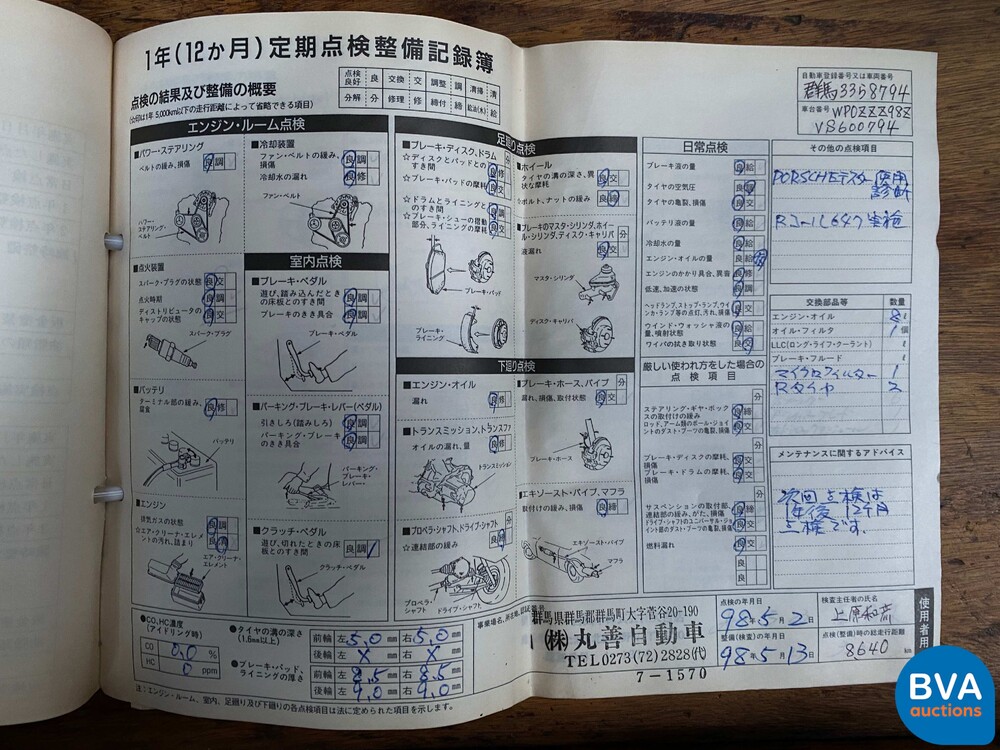 1年(12か月)定期点検整備記録簿
点検の結果及び整備の概要
(☆印は1年 5,000km以下の走行距離によって省略できる項目)
点検良好 良 交換 交 調整 調 清掃 清
分解 分 修理 修 締付 締 給油(水) 給
自動車登録番号又は車両番号
群馬335る794
車台番号 WP0ZZZ98Z
VS600794
エンジン・ルーム点検
■パワー・ステアリング
ベルトの緩み、損傷
良 調
パワー・ステアリング・ベルト
■冷却装置
ファン・ベルトの緩み、損傷
良 調
冷却水の漏れ
良 修
ファン・ベルト
■点火装置
スパーク・プラグの状態
良 交
点火時期
良 調
ディストリビュータのキャップの状態
良 交
スパーク・プラグ
■バッテリ
ターミナル部の緩み、腐食
良 修
バッテリ
■エンジン
排気ガスの状態
良 調
☆エア・クリーナ・エレメントの汚れ、詰まり
良 清
エア・クリーナ・エレメント
室内点検
■ブレーキ・ペダル
遊び、踏み込んだときの床板とのすき間
良 調
ブレーキのきき具合
良 調
ブレーキ・ペダル
■パーキング・ブレーキ・レバー(ペダル)
引きしろ(踏みしろ)
良 調
パーキング・ブレーキのきき具合
良 調
パーキング・ブレーキ・レバー
■クラッチ・ペダル
遊び、切れたときの床板とのすき間
良 調
クラッチ・ペダル
足廻り点検
■ブレーキ・ディスク、ドラム
分
☆ディスクとパッドとのすき間
良 修
☆ブレーキ・パッドの摩耗
良 交
☆ドラムとライニングとのすき間
☆ブレーキ・シューの摺動部分、ライニングの摩耗
良 交
ブレーキ・パッド
ブレーキ・ライニング
■ホイール
タイヤの溝の深さ、異状な摩耗
良 交
☆ボルト、ナットの緩み
良 締
■ブレーキのマスタ・シリンダ、ホイール・シリンダ、ディスク・キャリパ
液漏れ
良 交
マスタ・シリンダ
ディスク・キャリパ
下廻り点検
■エンジン・オイル
漏れ
良 修
■トランスミッション、トランスファ
オイルの漏れ、量
良 修
トランスミッション
■プロペラ・シャフト、ドライブ・シャフト
☆連結部の緩み
良 締
プロペラ・シャフト
ドライブ・シャフト
■ブレーキ・ホース、パイプ
分
漏れ、損傷、取付状態
良 交
ブレーキ・ホース
■エキゾースト・パイプ、マフラ
取付けの緩み、損傷
良 修
エキゾースト・パイプ
マフラ
日常点検
ブレーキ液の量
良 給
タイヤの空気圧
良 調
タイヤの亀裂、損傷
良 交
バッテリ液の量
良 給
冷却水の量
良 給
エンジン・オイルの量
良 給
エンジンのかかり具合、異音
良 修
低速、加速の状態
良 調
ヘッドランプ、ストップ・ランプ、ウインカ・ランプ等の点灯、汚れ、損傷
良 交
ウインド・ウォッシャ液の量、噴射状態
良 給
ワイパの拭き取り状態
良 交
厳しい使われ方をした場合の点検項目
分
ステアリング・ギヤ・ボックスの取付けの緩み
良 締
ロッド、アーム類のボール・ジョイントのダスト・ブーツの亀裂、損傷
良 交
分
ブレーキ・ディスクの摩耗、損傷
良 交
ブレーキ・ドラムの摩耗、損傷
良 交
分
サスペンションの取付部、連結部の緩み、がた、損傷
良 締
ドライブ・シャフトのユニバーサル・ジョイント部のダスト・ブーツの亀裂、損傷
良 交
燃料漏れ
良 交
良
良
その他の点検項目
PORSCHEテスター使用
診断
交換部品等 数量
エンジン・オイル 8 ℓ
オイル・フィルタ 1 個
LLC(ロング・ライフ・クーラント) ℓ
ブレーキ・フルード ℓ
マイクロフィルター 1
Rタイヤ 2
メンテナンスに関するアドバイス
次回点検は
12ヶ月
点検です。
●CO、HC濃度(アイドリング時)
CO 0.0 %
HC 0 ppm
●タイヤの溝の深さ(1.6mm以上)
前輪 左 5.0 mm 右 5.0 mm
後輪 左 X mm 右 X mm
●ブレーキ・パッド、ライニングの厚さ
前輪 左 8.5 mm 右 8.5 mm
後輪 左 9.0 mm 右 9.0 mm
群馬県群馬郡群馬町大字菅谷20-190
(株)丸善自動車
TEL0273(72)2828(代)
7-1570
点検の年月日
98年5月2日
整備(検査)の年月日
98年5月13日
検査主任者の氏名
上原和彦
点検(整備)時の総走行距離
8640 km
使用者用
注:エンジン・ルーム、室内、足廻り及び下廻りの各点検項目は法に定められた項目を示します。
BVA
auctions